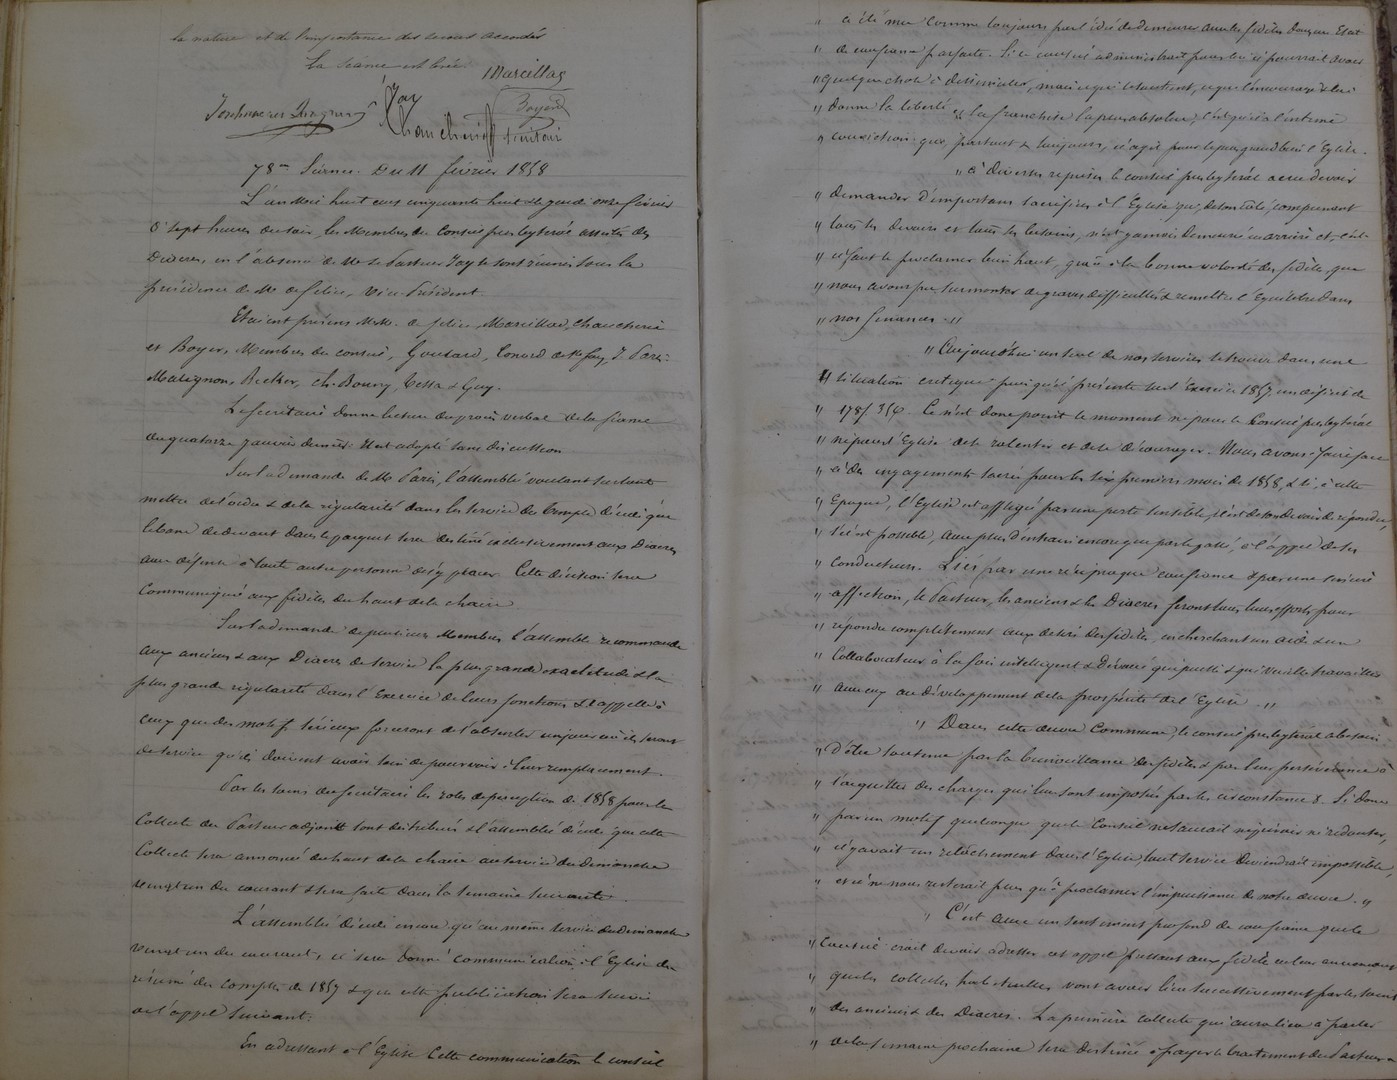 la nature et de l'importance des secours accordés
La séance est levée.
Marcillac
Jay
Boyer
78me Séance. Du 11 février 1858
L'an Mil huit cens cinquante huit & le jeudi onze février
à sept heures du soir, les Membres du Conseil presbytéral assistés des
Diacres, en l'absence de Mr le Pasteur Jay se sont réunis sous la
présidence de Mr de felice, Vice-Président.
Etaient présens MM. de felice, Marcillac, Chaucherie
et Boyer, Membres du conseil, Goulard, J. Paris,
Malignon, Becker, ch. Bourry, Tessa & Guy.
Le Secrétaire donne lecture du procès verbal de la séance
du quatorze janvier dernier. Il est adopté sans discussion
Sur la demande de Mr Paris, l'assemblée voulant surtout
mettre de l'ordre & de la régularité dans les services des Comptes décide que
le banc de devant dans le parquet sera destiné exclusivement aux Diacres
avec défense à toute autre personne de s'y placer. Cette décision sera
Communiquée aux fidèles du haut de la chaire.
Sur la demande de plusieurs Membres l'assemblée recommande
aux anciens & aux Diacres de service la plus grande exactitude & la
plus grande régularité dans l'Exercice de leurs fonctions & rappelle à
ceux que des motifs sérieux forceront de s'absenter un jour où ils seront
de service qu'ils doivent avoir soin de pourvoir à leur remplacement.
Par les soins du Secrétaire les rôles de perception de 1858 pour la
Collecte du Pasteur adjoint sont distribués & l'assemblée décide que cette
Collecte sera annoncée du haut de la chaire au service du Dimanche
vingt un du courant & sera faite dans la semaine suivante.
L'assemblée décide encore qu'au même service du dimanche
vingt un du courant, il sera donné communication à l'Eglise du
résumé des Comptes de 1857 & que cette publication sera suivie
de l'appel suivant:
En adressant à l'Eglise Cette communication le conseil
" a été mu comme toujours par l'idée de demeurer avec les fidèles dans un Etat
" de confiance parfaite. Si le conseil administrait pour lui il pourrait avoir
" quelque chose à dissimuler, mais ce qui le soutient, ce qui l'encourage & lui
" donne la liberté & la franchise la plus absolue, c'est qu'il a l'intime
" conviction que, partout & toujours, il agit pour le plus grand bien de l'Eglise.
" à diverses reprises le conseil presbytéral a cru devoir
" demander d'importans sacrifices à l'Eglise qui, de son côté, comprenant
" tous ses devoirs et tous ses besoins, n'est jamais demeurée en arrière et, c'est
" il faut le proclamer bien haut, grâce à la bonne volonté des fidèles, que
" nous avons pu surmonter de graves difficultés & remettre l'Equilibre dans
" nos finances. "
" Aujourd'hui un seul de nos services se trouve dans une
" situation critique puisqu'il présente sur l'Exercice 1857 un déficit de
" 178f 35c. Ce n'est donc point le moment ni pour le Conseil presbytéral
" ni pour l'Eglise de se ralentir et de se décourager. Nous avons à faire face
" à des engagements sacrés pour les six premiers mois de 1858, & si, à cette
" Epoque, l'Eglise est affligée par une perte sensible, il est de son devoir de répondre,
" s'il est possible, avec plus d'entrain encore que par le passé, à l'appel de ses
" Conducteurs. Liés par une réciproque confiance & par une sincère
" affection, le Pasteur, les anciens & les Diacres feront tous leurs efforts pour
" répondre complétement aux désirs des fidèles, en cherchant un aide & un
" Collaborateur à la fois intelligent & dévoué qui puisse & qui veuille travailler
" avec eux au développement de la prospérité de l'Eglise. "
" Dans cette œuvre Commune, le conseil presbytéral a besoin
" d'être soutenu par la bienveillance des fidèles & par leur persévérance à
" s'acquitter des charges qui leur sont imposées par les circonstances. Si donc
" par un motif quelconque que le Conseil ne saurait ni prévoir ni redouter,
" il y avait un relâchement dans l'Eglise, tout service deviendrait impossible,
" et il ne nous resterait plus qu'à proclamer l'impuissance de notre œuvre. "
" C'est avec un sentiment profond de confiance que le
" Conseil croit devoir adresser cet appel pressant aux fidèles en leur annonçant
" que les collectes habituelles vont avoir lieu successivement par les soins
" des anciens & des Diacres. La première collecte qui aura lieu à partir
" de la semaine prochaine sera destinée à payer le traitement du Pasteur